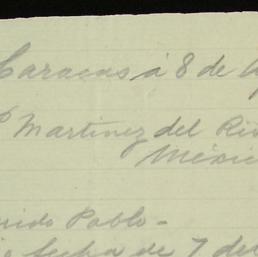 Caracas á 8 de
Martinez del Rio
México
Pablo -
fecha de 7 del